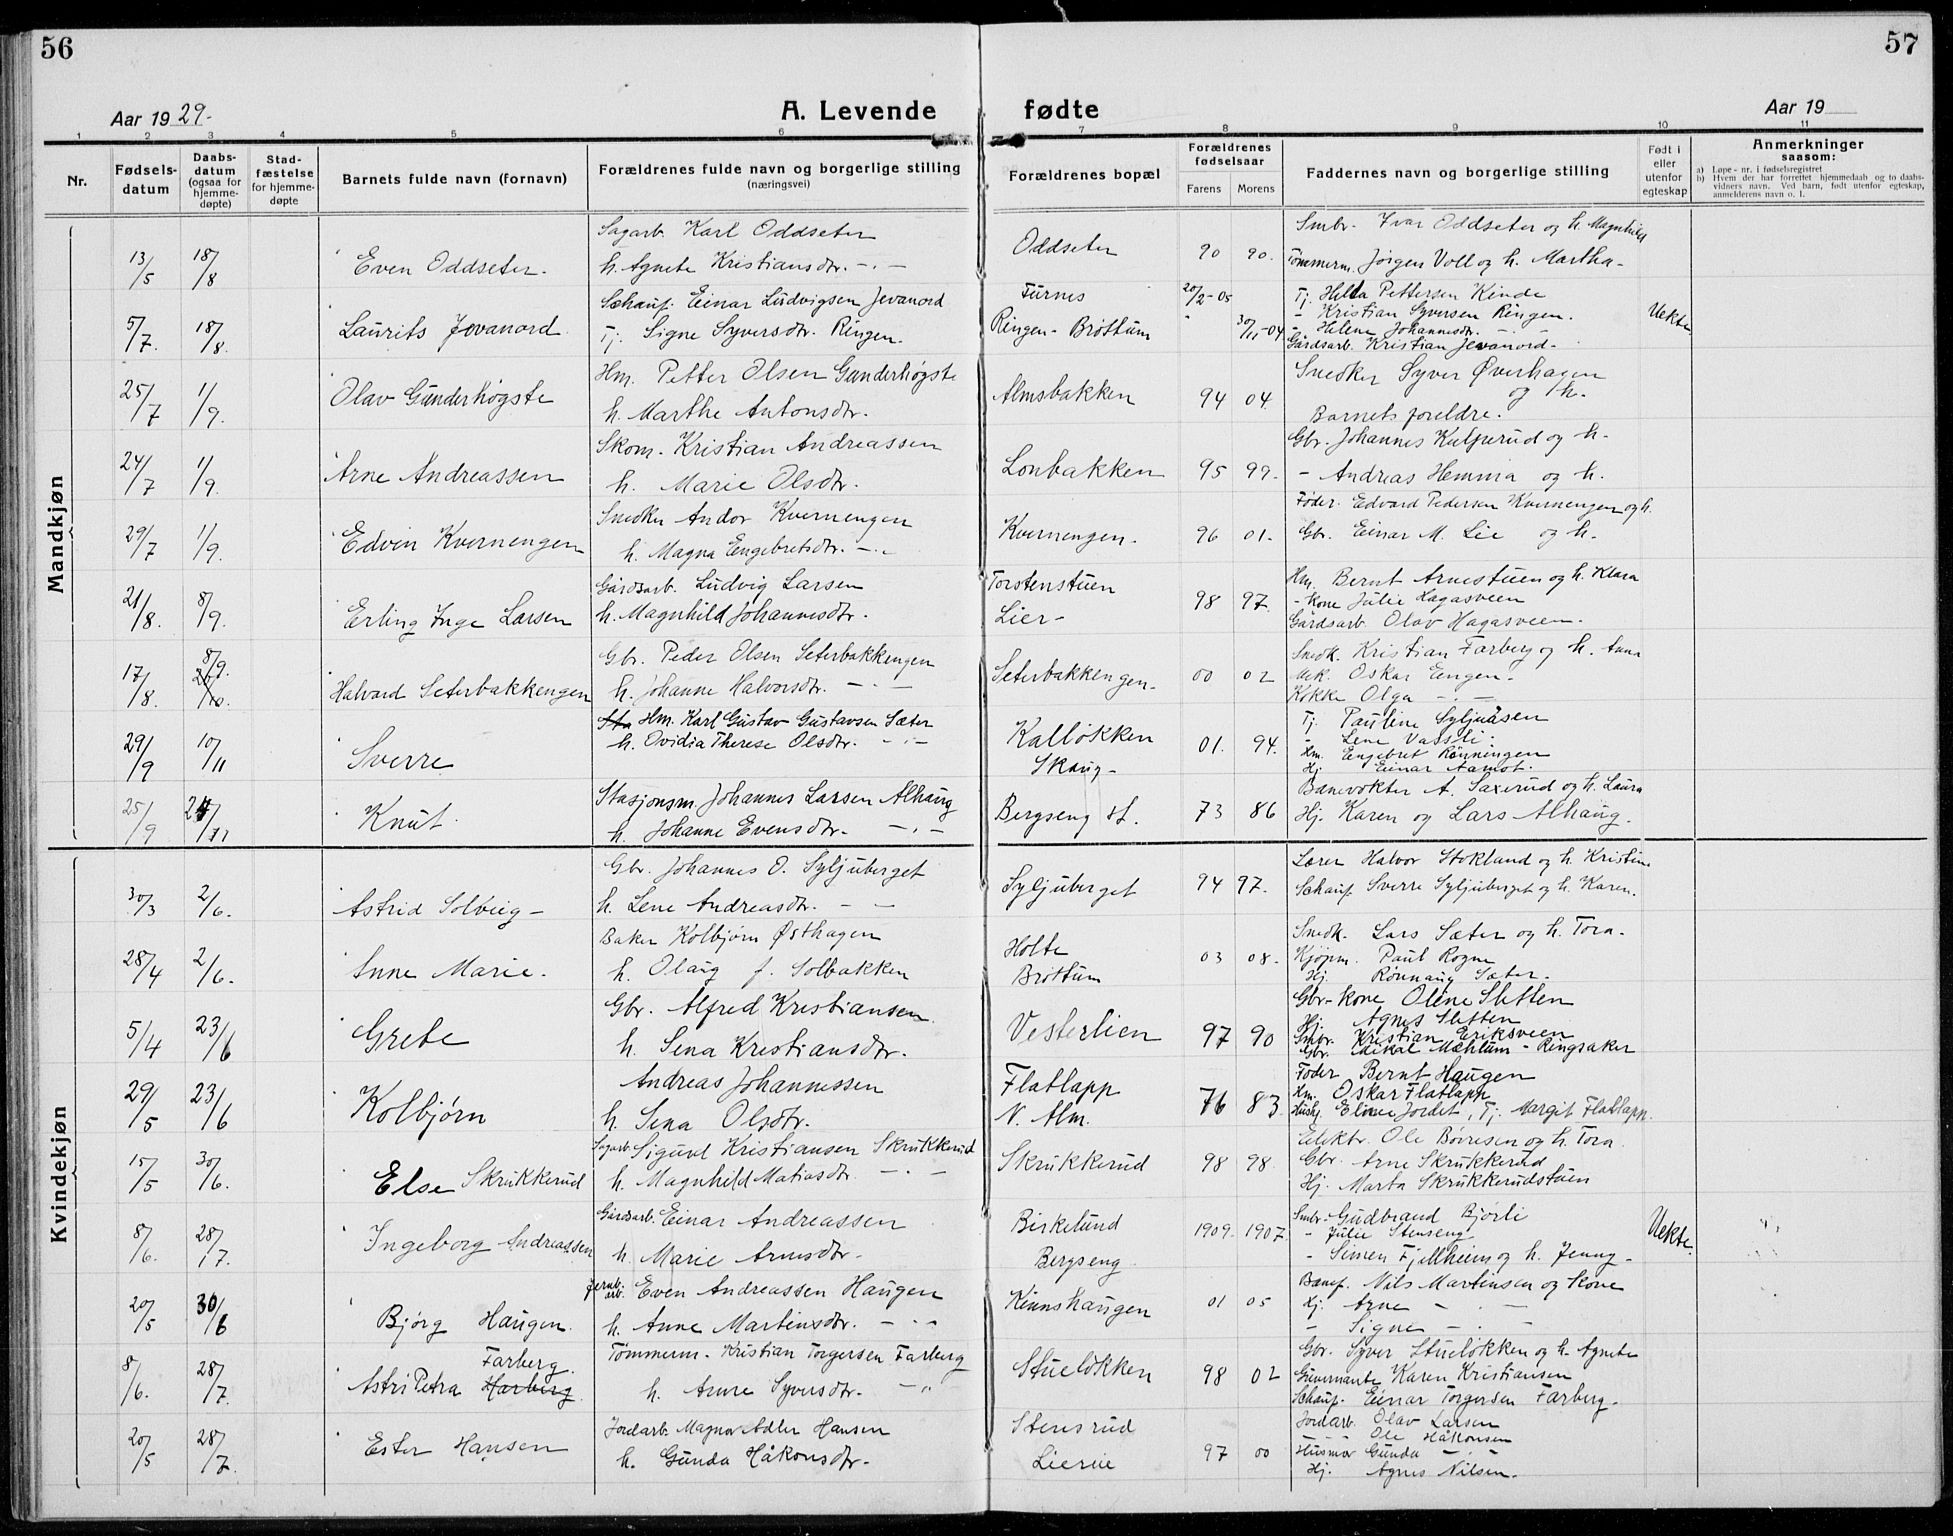 56
57
Aar 1929.
A. Levende fødte
Aar 19
1 2 3 4 5 6 7 8 9 10 11
Nr.
Fødsels-datum
Daabs-datum (ogsaa for hjemme-døpte)
Stad-fæstelse for hjemme-døpte
Barnets fulde navn (fornavn)
Forældrenes fulde navn og borgerlige stilling (næringsvei)
Forældrenes bopæl
Forældrenes fødselsaar
Farens Morens
Faddernes navn og borgerlige stilling
Født i eller utenfor egteskap
Anmerkninger saasom:
a) Løpe-nr. i fødselsregistret
b) Hvem der har forrettet hjemmedaab og to daabs-vidners navn. Ved barn, født utenfor egteskap, anmelderens navn o. l.
Mandkjøn
13/5 18/8 Even Oddseter.
Sagarb. Karl Oddseter
h. Agnete Kristiansdr. -.-
Oddseter 90 90.
Smbr. Ivar Oddseter og h. Magnhild
Tømmerm. Jørgen Voll og h. Martha-
5/7. 18/8. Laurits Jevanord
Schauf. Einar Ludvigsen Jevanord
Tj. Signe Syversdtr. Ringen.
Furnes 20/2-05
Ringen - Brøttum 30/11-04
Tj. Hilda Pettersen Kinde
- Kristian Syversen Ringen.
- Helene Johannesdtr. - -
Gårdsarb. Kristian Jevanord-
Uekte
25/7 1/9. Olav Gunderhøgste
Hm. Petter Olsen Gunderhøgste
h. Marthe Antonsdtr.
Almsbakken 94 04.
Snedker Syver Øverhagen
og h.
Barnets foreldre.
24/7 1/9. Arne Andreassen
Skom. Kristian Andreassen
h. Marie Olsdtr.
Lonbakken 95 99.
Gbr. Johannes Kulperud og h.
- Andreas Hemma og h.
29/7 1/9. Edvin Kvernengen
Snedker Andor Kvernengen
h. Magna Engebretsdtr. -.-
Kvernengen. 96 01.
Føder. Edvard Pedersen Kvernengen og h.
Gbr. Einar M. Lie og h.
21/8. 8/9. Erling Inge Larsen
Gårdsarb. Ludvig Larsen
h. Magnhild Johannesdtr.
Torstenstuen
Lier- 98 97.
Hm. Bernt Arnestuen og h. Klara
- kone Julie Hagasveen
Gårdsarb. Olav Hagasveen.
17/8. 8/9. Halvard Seterbakkengen
Gbr. Peder Olsen Seterbakkengen
h. Johanne Halvorsdtr. - . -
Seterbakkengen. 00 02
Snedk. Kristian Farberg og h. Anna
Uk. Oskar Engen.
Kokke Olga - . -
29/9 10/11 Sverre
Hm. Karl Gustav Gustavsen Sæter
h. Ovidia Therese Olsdtr. - . -
Kalløkken
Skaug- 01. 94.
Tj. Pauline Syljuåsen
- Lene Vassli.
Hm. Engebret Rønningen
Hj. Einar Aamot.
25/9 24/11 Knut
Stasjonsm. Johannes Larsen Alhaug
h. Johanne Evensdtr. - . -
Bergseng st. 73 86
Banevokter A. Saxerud og h. Laura
Hj. Karen og Lars Alhaug.
Kvindekjøn
30/3 2/6. Astrid Solveig-
Gbr. Johannes O. Syljuberget
h. Lene Andreasdtr. - -
Syljuberget 94 97.
Lærer Halvor Stokland og h. Kristine
Schauf. Sverre Syljuberget og h. Karen.
28/4 2/6. Anne Marie.
Baker Kolbjørn Østhagen
h. Olaug f. Solbakken
Holte
Brøttum 03 08.
Snedk. Lars Sæter og h. Tora.
Kjøpm. Paul Rogne
Hj. Rønnaug Sæter.
5/4 23/6 Grete
Gbr. Alfred Kristiansen.
h. Sena Kristiansdtr.
Vesterlien 97 90
Gbr-kone Oline Sletten
Hj. Agnes Sletten
Smbr. Kristian Eriksveen
Gbr. Mikal Mæhlum - Ringsaker
29/5 23/6 Kolbjørn
Andreas Johannessen
h. Sena Olsdtr.
Flatlapp
N. Alm. 76 83.
Føder Bernt Haugen
Hm. Oskar Flatlapp
Hushj. Eline Jordet, Tj. Margit Flatlapp.
15/5 30/6. Else Skrukkerud
Sagarb. Sigurd Kristiansen Skrukkerud
h. Magnhild Matiasdtr. - . -
Skrukkerud 98 98.
Elektr. Ole Børresen og h. Tora.
Gbr. Arne Skrukkerud
Hj. Marta Skrukkerudstuen
8/6. 28/7. Ingeborg Andreassen
Gårdsarb. Einar Andreassen
h. Marie Arnesdtr.
Birkelund
Bergseng 1909. 1907.
Smbr. Gudbrand Bjørli
- Julie Stenseng
- Simen Fjellheim og h. Jenny-
Uekte.
20/5 30/6 Bjørg Haugen.
Jernb. arb. Even Andreassen Haugen
h. Anne Martinsdtr. - . -
Kinnshaugen 01 05
Banef. Nils Martinsen og kone
Hj. Arne - -
- Signe - . -
8/6. 28/7. Astri Petra Harberg Farberg
Tømmerm. Kristian Torgersen Farberg
h. Anne Syversdtr. - . -
Stueløkken 98 02
Gbr. Syver Stueløkken og h. Agnete
Guvernante Karen Kristiansen
Schauf. Einar Torgersen Farberg.
20/5 28/7. Ester Hansen
Jordarb. Magnor Adler Hansen
h. Gunda Håkonsdtr.
Stensrud
Lierne 97 00
Jordarb. Olav Larsen
- - Ole Håkonsen
Husmor Gunda - . -
Hj. Agnes Nilsen.